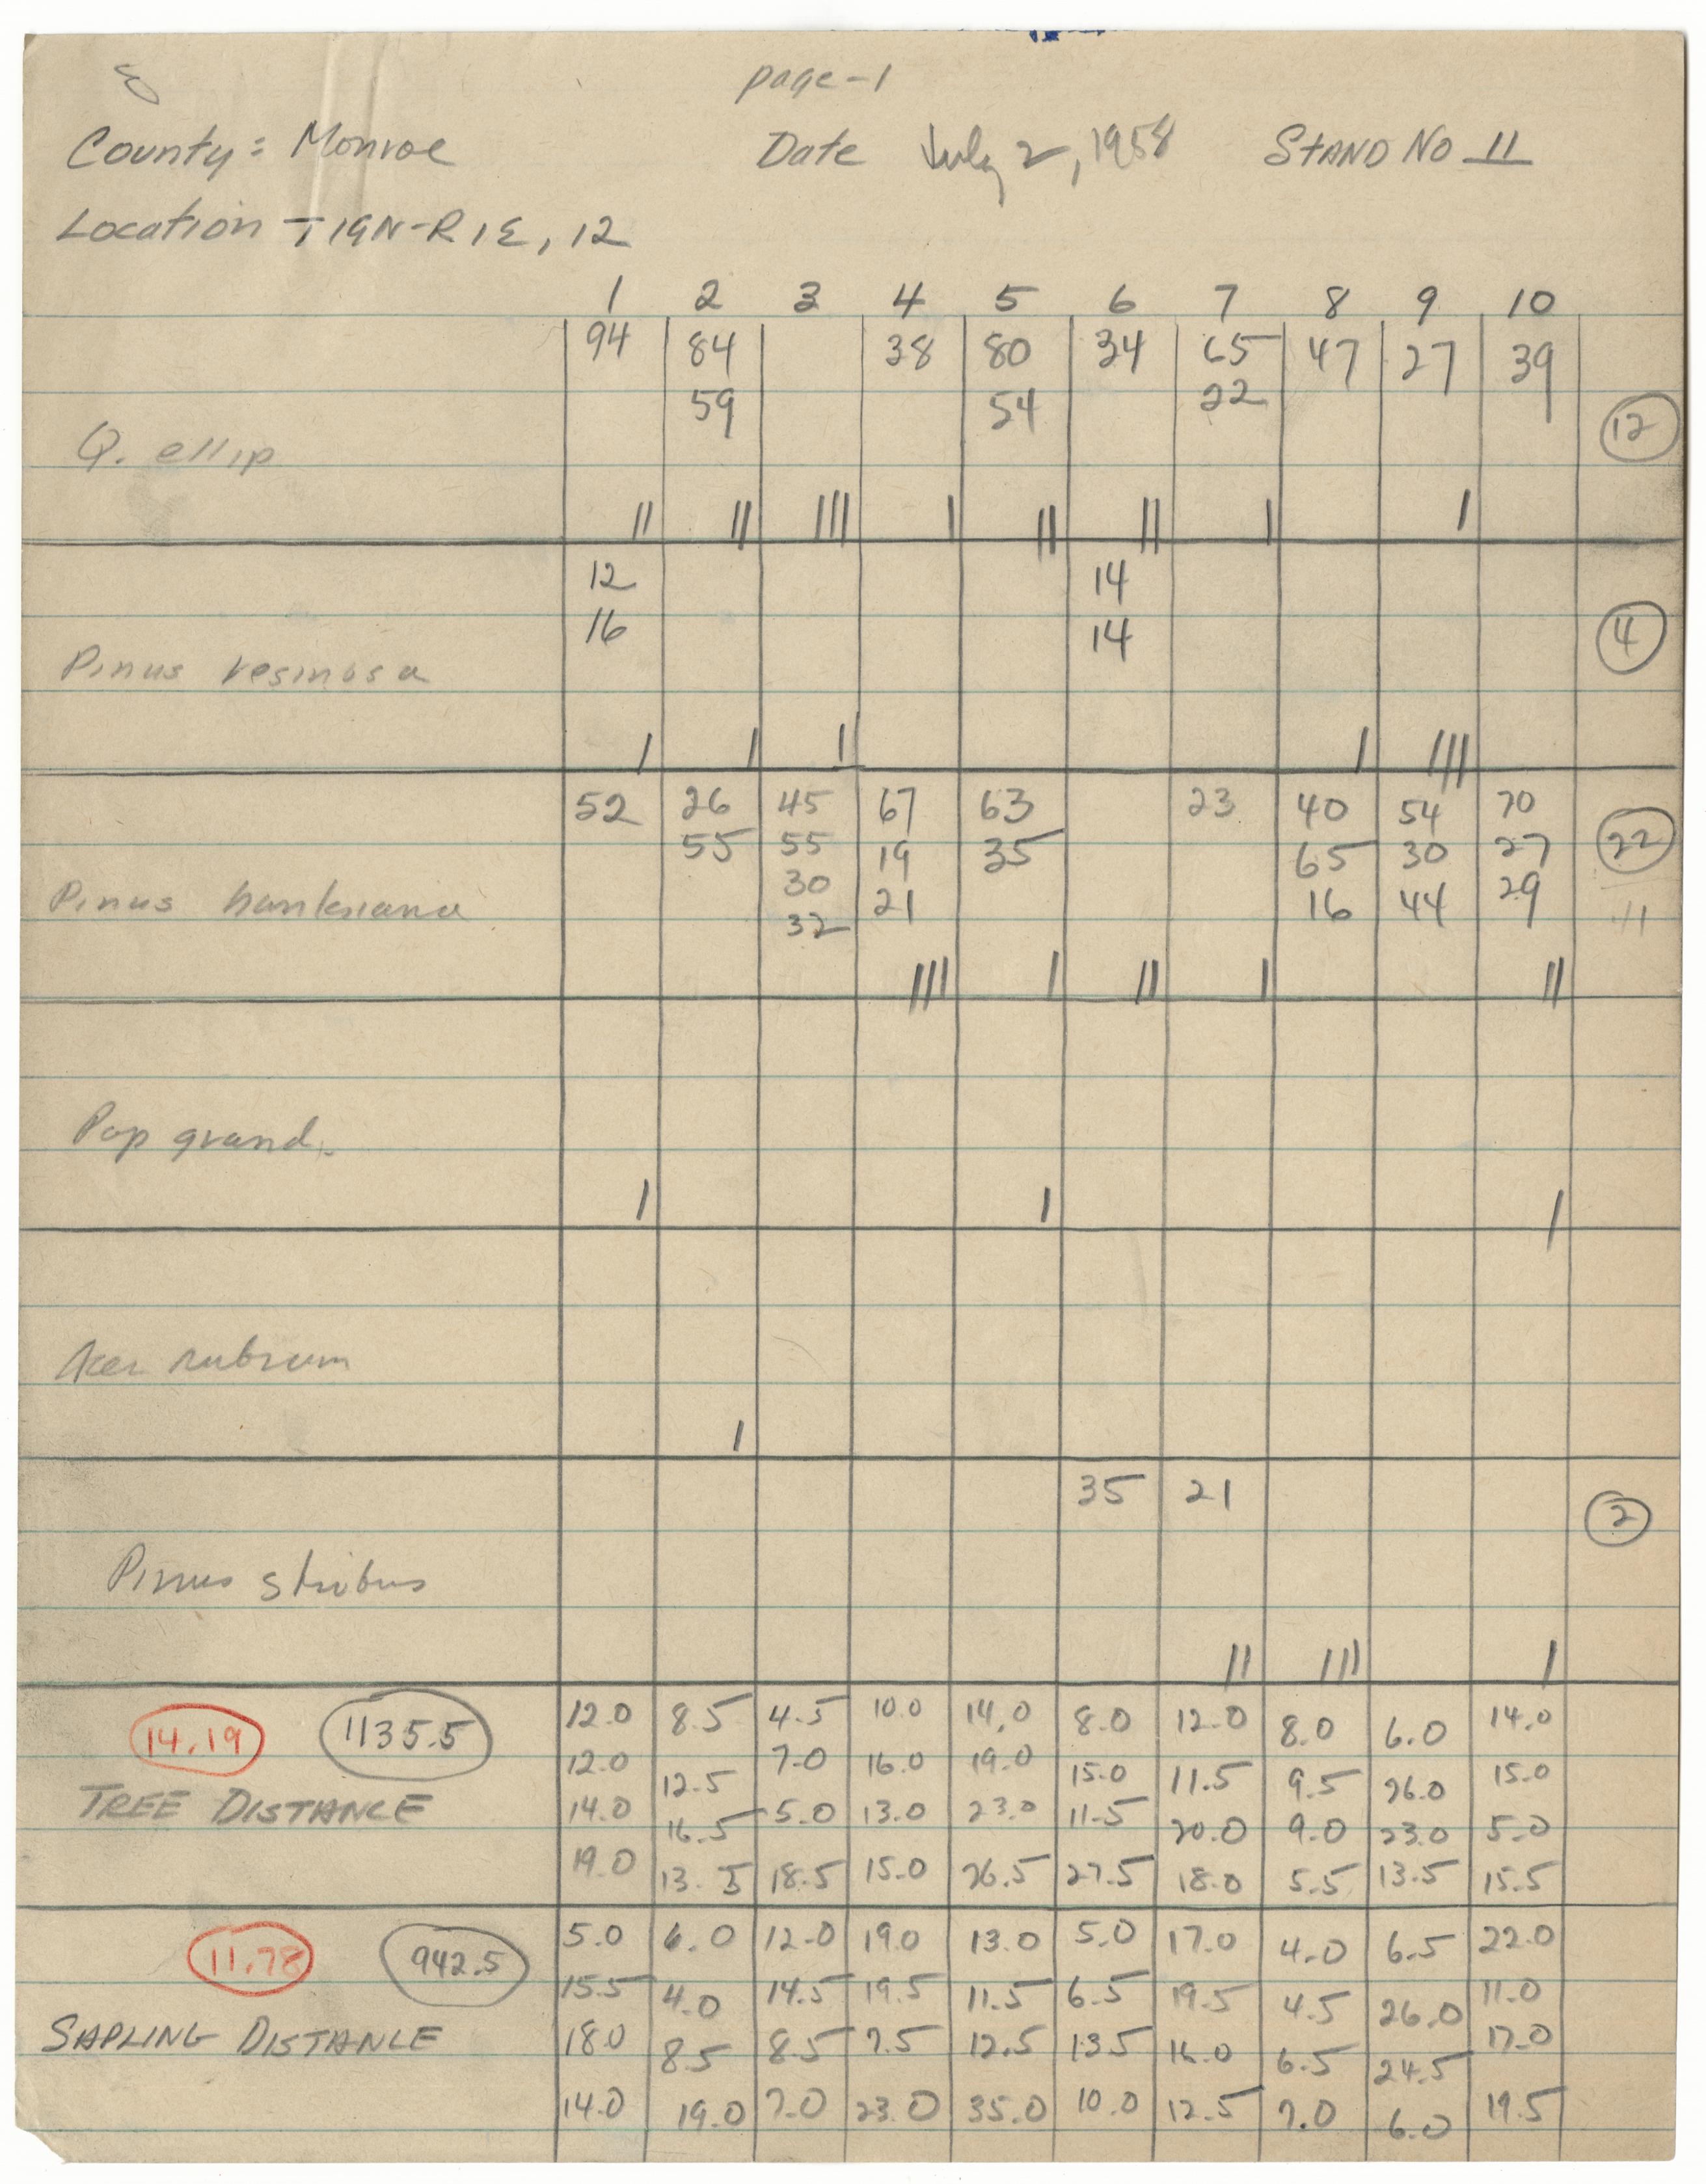 page-1
County: Monroe Date July 2, 1958 STAND NO 11
Location T19N-R1E, 12
1 2 3 4 5 6 7 8 9 10
94 84 38 80 34 65 47 27 39
59 54 22
12
Q. ellip
|| || ||| | || || | |
12 14
16 14
4
Pinus resinosa
| | || | |||
52 26 45 67 63 23 40 54 70
55 55 19 35 65 30 27 22
30 21 16 44 29
32
Pinus banksiana
||| | || | ||
Pop grand.
| | |
Acer rubrum
|
35 21
2
Pinus strobus
|| ||| |
14.19 1135.5 12.0 8.5 4.5 10.0 14.0 8.0 12.0 8.0 6.0 14.0
12.0 12.5 7.0 16.0 19.0 15.0 11.5 9.5 26.0 15.0
TREE DISTANCE 14.0 16.5 5.0 13.0 23.0 11.5 20.0 9.0 23.0 5.0
19.0 13.5 18.5 15.0 26.5 27.5 18.0 5.5 13.5 15.5
11.78 942.5 5.0 6.0 12.0 19.0 13.0 5.0 17.0 4.0 6.5 22.0
15.5 4.0 14.5 19.5 11.5 6.5 19.5 4.5 26.0 11.0
SAPLING DISTANCE 18.0 8.5 8.5 7.5 12.5 13.5 16.0 6.5 24.5 17.0
14.0 19.0 7.0 23.0 35.0 10.0 12.5 7.0 6.0 19.5